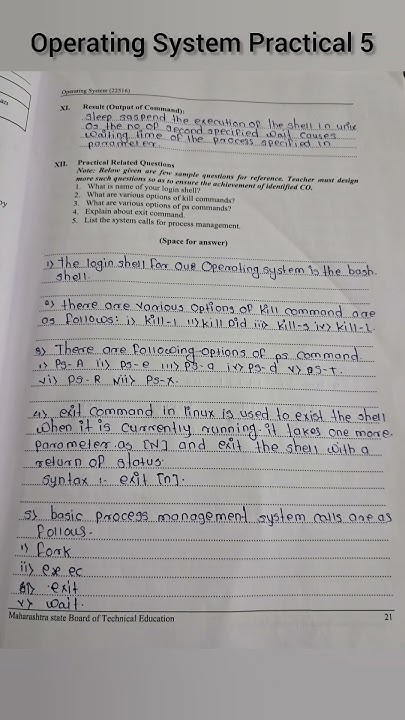 Operating System Practical 5
Operating System (22516)
XI. Result (Output of Command):
sleep saspend the execution of the shell in unix
as the no. of second specified wait causes
waiting time of the process specified in
parameter.
XII. Practical Related Questions
Note: Below given are few sample questions for reference. Teacher must design
more such questions so as to ensure the achievement of identified CO.
1. What is name of your login shell?
2. What are various options of kill commands?
3. What are various options of ps commands?
4. Explain about exit command.
5. List the system calls for process management.
(Space for answer)
1) The login shell for our Operating system is the bash
shell.
2) there are various options of kill command are
as follows: i) kill-1 ii) kill pid iii) kill-s iv) kill-l.
3) There are following options of ps command
i) Ps-A ii) ps-e iii) Ps-a iv) Ps-d v) ps-T.
vi) ps-R vii) Ps-x.
4) exit command in linux is used to exist the shell
when it is currently running. it takes one more
parameter as [N] and exit the shell with a
return of status.
Syntax :- exit [n].
5) basic process management system calls are as
follows.
i) fork
ii) exec
exit
v) wait.
Maharashtra state Board of Technical Education 21